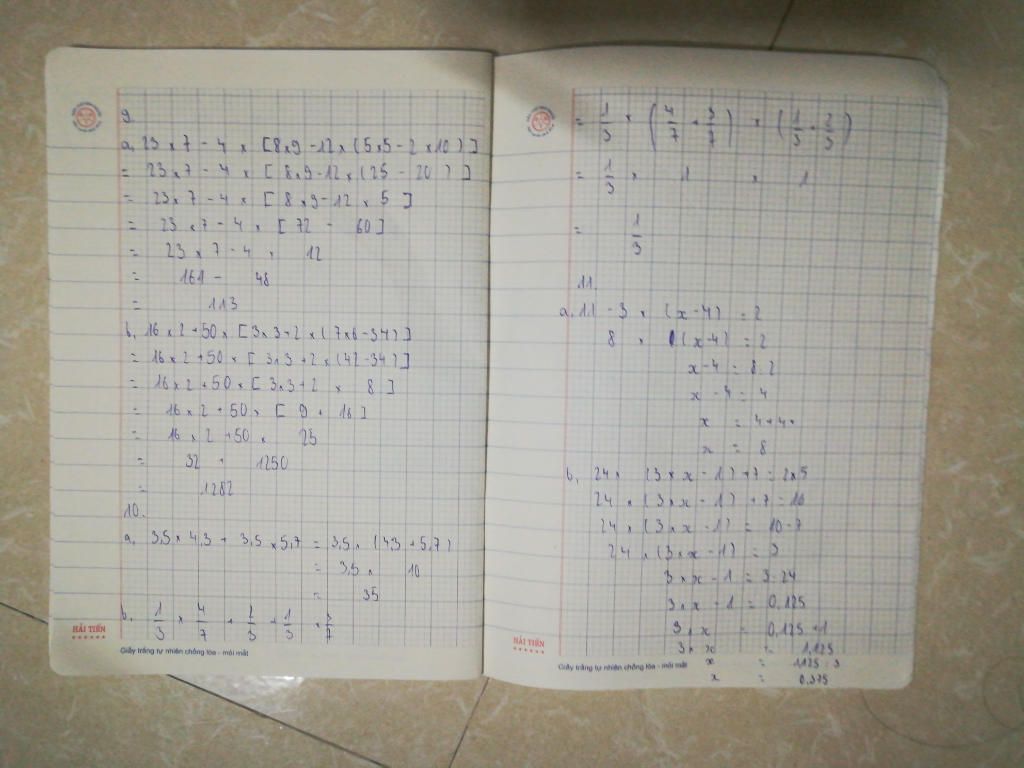 9.
a, 23 x 7 - 4 x [8x9 - 12 x (5x5 - 2 x 10)]
= 23 x 7 - 4 x [8x9 - 12 x (25 - 20)]
= 23 x 7 - 4 x [8x9 - 12 x 5]
= 23 x 7 - 4 x [72 - 60]
= 23 x 7 - 4 x 12
= 161 - 48
= 113
b, 16 x 2 + 50 x [3x3 + 2 x (7x6 - 34)]
= 16 x 2 + 50 x [3x3 + 2 x (42 - 34)]
= 16 x 2 + 50 x [3x3 + 2 x 8]
= 16 x 2 + 50 x [9 + 16]
= 16 x 2 + 50 x 25
= 32 + 1250
= 1282
10.
a, 3,5 x 4,3 + 3,5 x 5,7 = 3,5 x (4,3 + 5,7)
= 3,5 x 10
= 35
b, 1/3 x 4/7 + 2/3 + 1/3 x 3/7
HẢI TIẾN
Giấy trắng tự nhiên chống lóa - mỏi mắt
= 1/3 x (4/7 + 3/7) x (1/3 + 2/3)
= 1/3 x 1 x 1
= 1/3
11.
a, 11 - 3 x (x - 4) = 2
8 x (x - 4) = 2
x - 4 = 8:2
x - 4 = 4
x = 4 + 4
x = 8
b, 24 x (3 x x - 1) + 7 = 2x5
24 x (3 x x - 1) + 7 = 10
24 x (3 x x - 1) = 10 - 7
24 x (3 x x - 1) = 3
3 x x - 1 = 3:24
3 x x - 1 = 0,125
3 x x = 0,125 + 1
3 x x = 1,125
x = 1,125 : 3
x = 0,375
HẢI TIẾN
Giấy trắng tự nhiên chống lóa - mỏi mắt